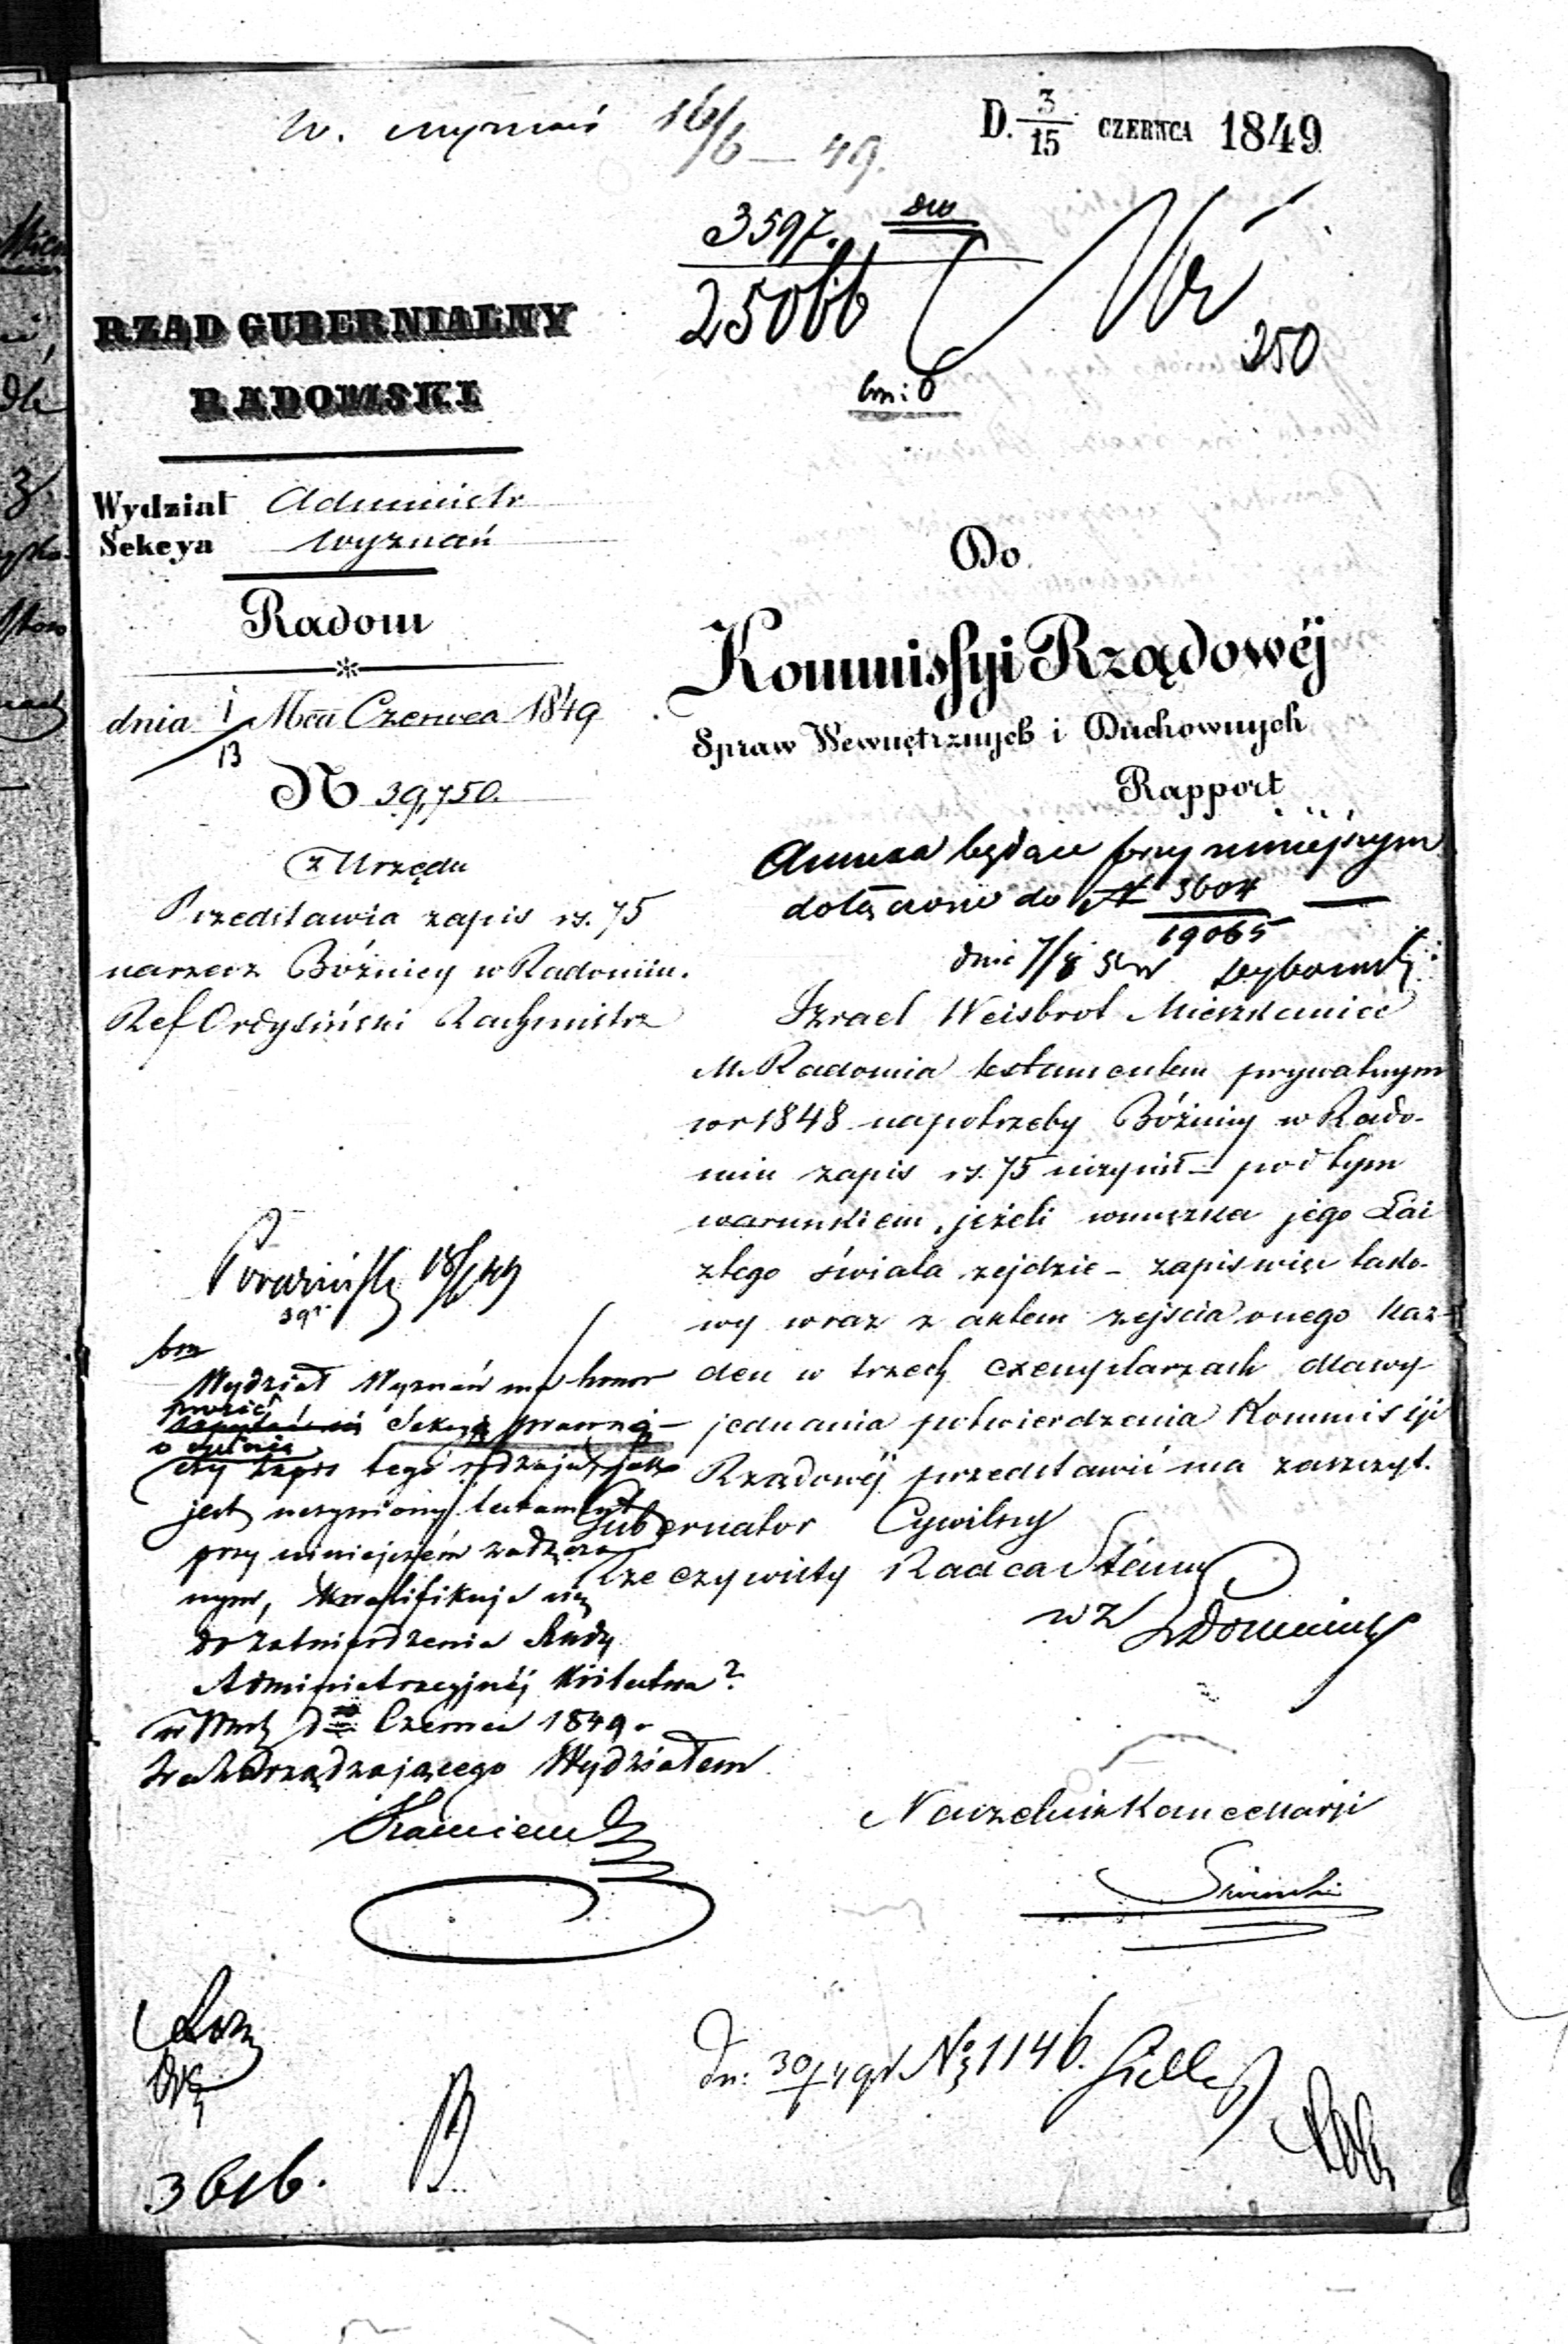 W. wyznań 16/6 – 49.
D. 3/15 CZERWCA 1849
3597.
25066
250
RZĄD GUBERNIALNY
RADOMSKI
Wydział Administr
Sekcya wyznań
Radom
dnia 1/13 Mca Czerwca 1849
N 39,750.
z Urzędu
Przedstawia zapis rs. 75
narzecz Bóźnicy w Radomiu.
Ref Ordysiński Rachmistrz
Do
Kommissyi Rządowéj
Spraw Wewnętrznych i Duchownych
Rapport
Annexa będące przy niniejszym
dołączone do N 3604/19065
dnia
Izrael Weisbrot Mieszkaniec
M. Radomia testamentem prywatnym
w r 1848 na potrzeby Bóżnicy w Rado-
miu zapis rs. 75 uczynił – pod tym
warunkiem, jeżeli wnuczka jego Łai
z tego świata zejdzie – zapis więc tako-
wy wraz z aktem zejścia onego każ-
den w trzech exemplarzach dla wy-
jednania potwierdzenia Kommisiji
Rządowéj przedstawić ma zaszczyt.
Gubernator Cywilny
Rzeczywisty Radca Stanu
w z
Naczelnik Kancellarji
18/6 49
Wydział Wyznań ma honor
prosić Sekcyę prawną –
o opinię
czy zapis tego rodzaju, jak
jest uczyniony testament
przy niniejszém
nym, kwalifikuje się
do zatwierdzenia Rady
Administracyjnéj Królestwa?
w d Czerwca 1849 r
Za Zarządzającego Wydziałem
Dn: 30/ 49 r N 1146.
3616.